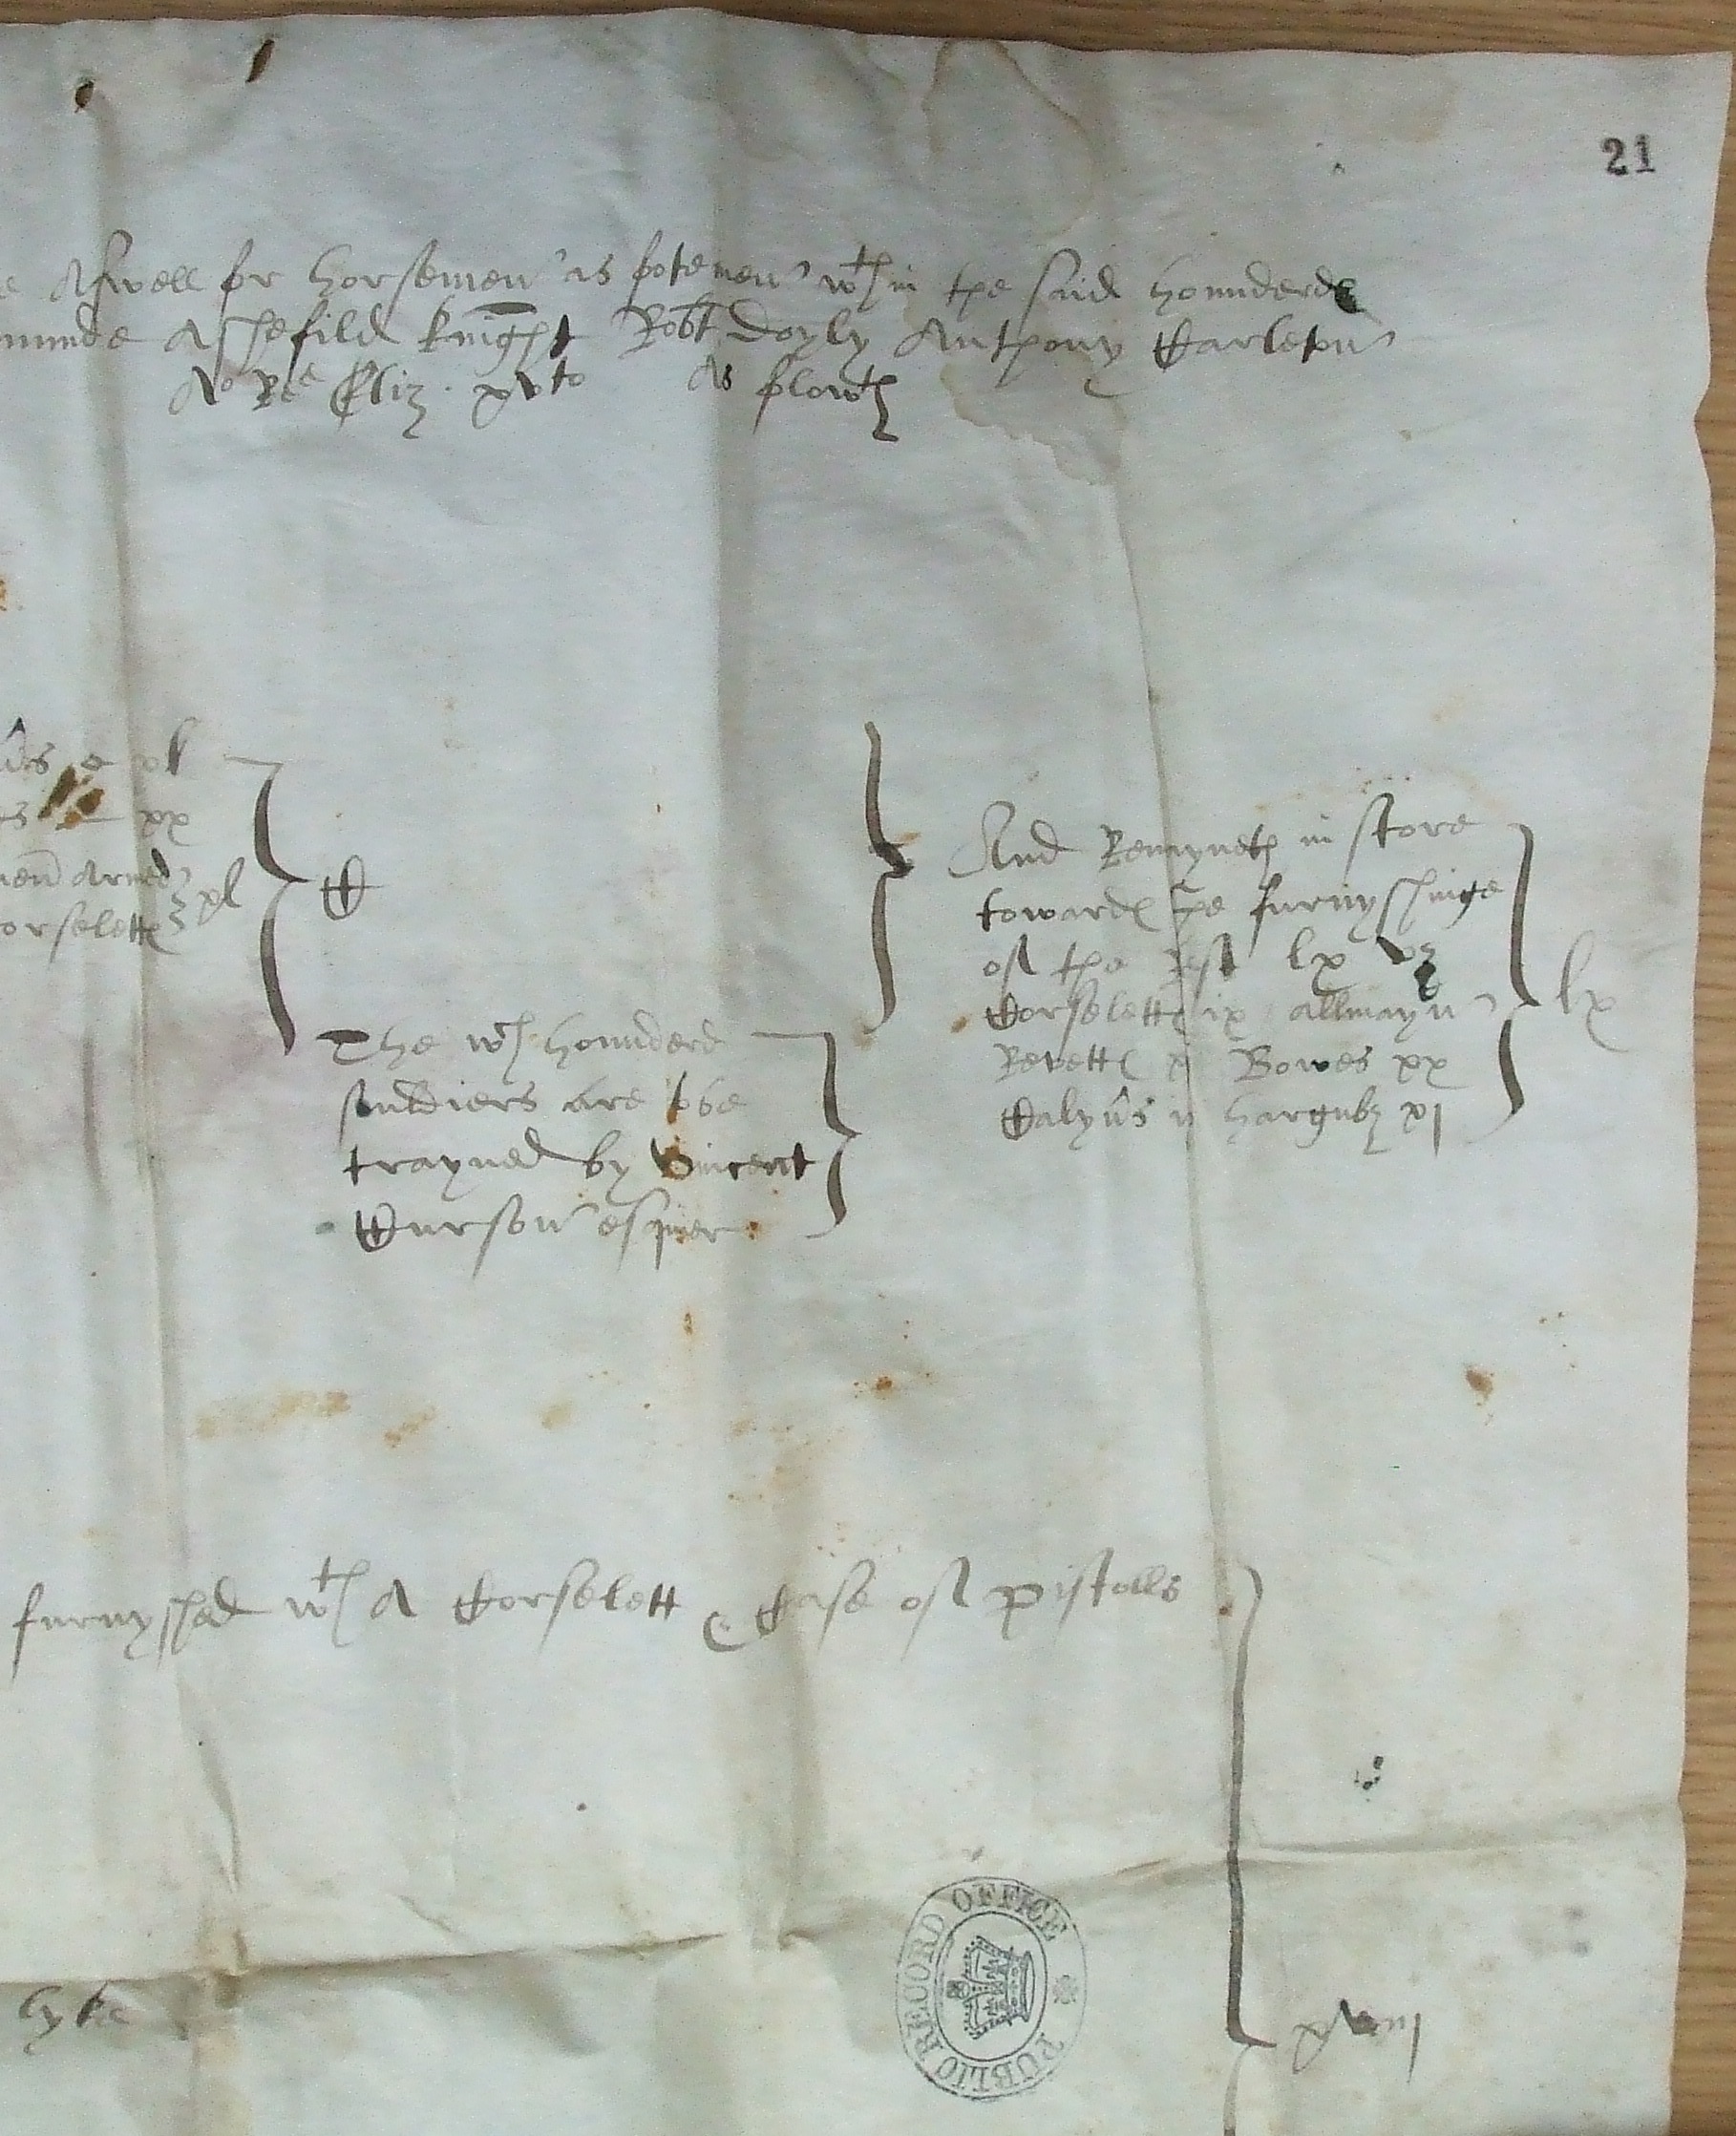 21
Aswell for horsemen as fotemen wth in the said hounderd
munde Asshefild knight Robt Doyly Anthony Carleton
Ao Re Eliz. xvto As folowth
xl
xx
men Armed
orselett
xl
C
The wch hounderd
souldiers are to be
trayned by Vincent
Curson esquier
And Remayneth in store
toward the furnyshinge
of the Rest lx vz
Corselett ix allmayn
Revett x Bowes xx
Calyvrs harqubz xj
lx
furnyshed wth A Corselett & Case of pistolls
lyke
xviij
PUBLIC RECORD OFFICE